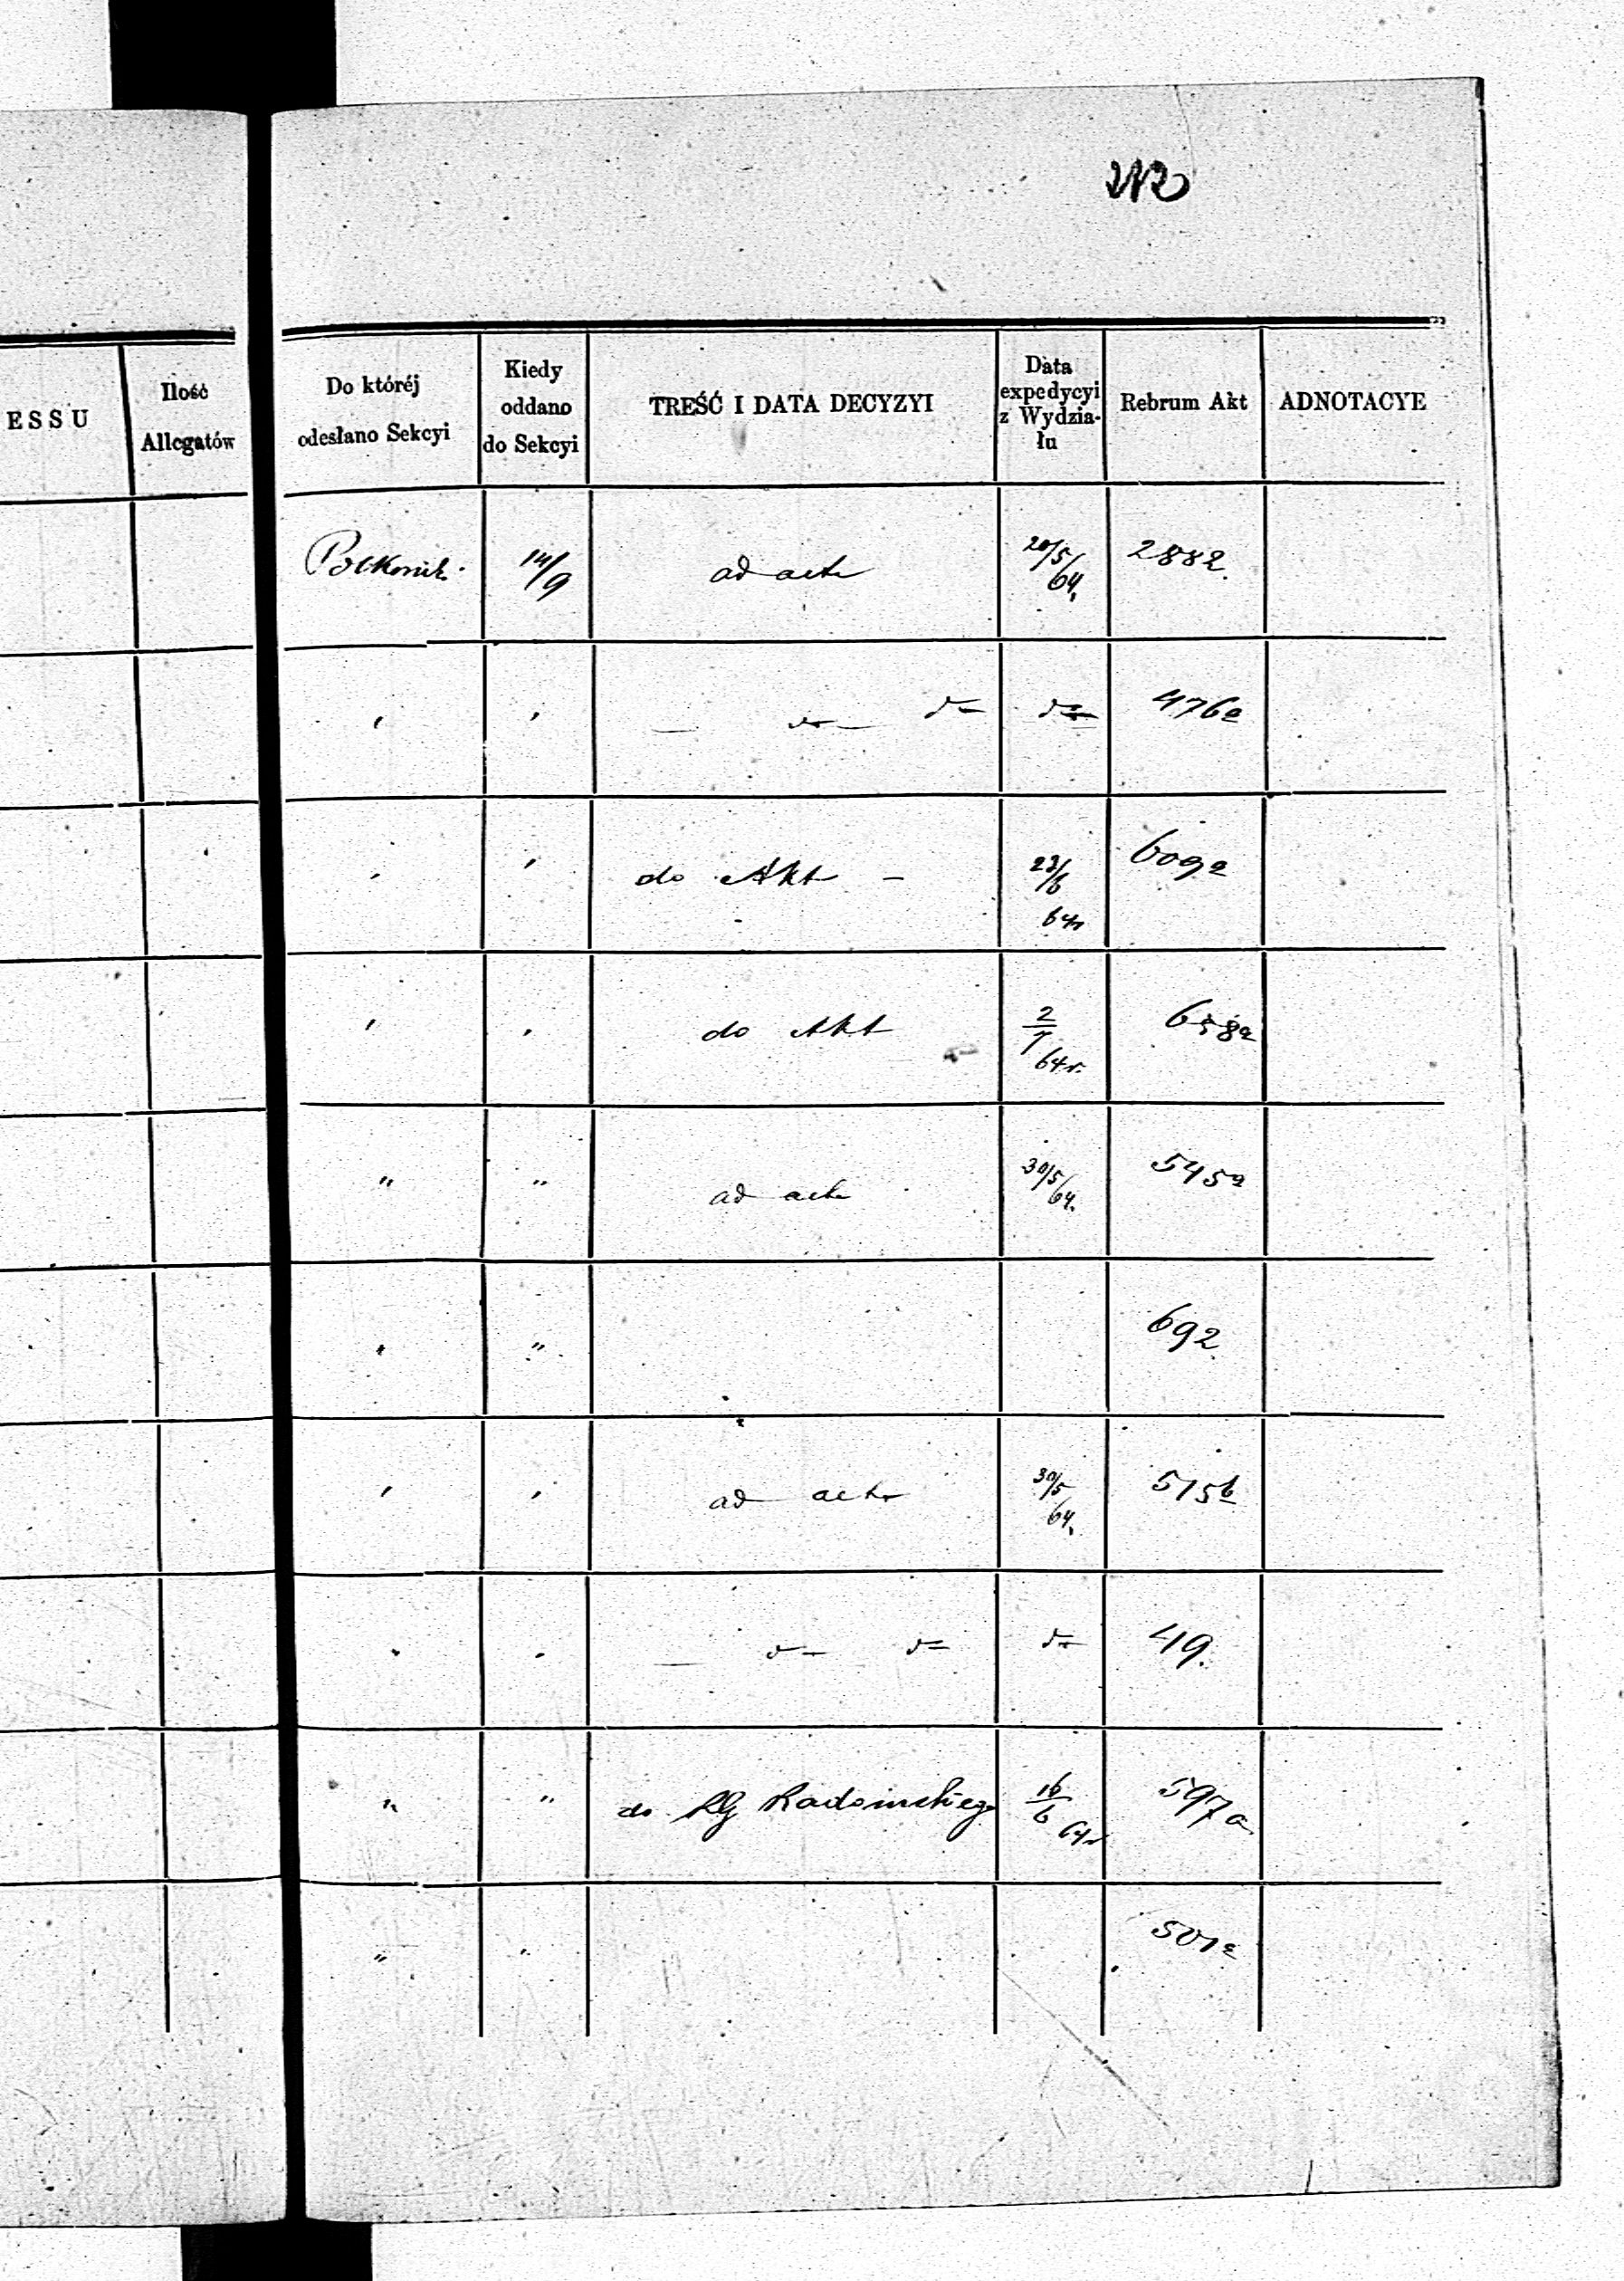 212
ESSU
Ilość
Allegatów
Do któréj
odesłano Sekcyi
Kiedy
oddano
do Sekcyi
TREŚĆ I DATA DECYZYI
Data
expedycyi
z Wydzia-
łu
Rebrum Akt
ADNOTACYE
14/9 ad acta 20/5/64. 2882.
476a
do Akt – 23/6 609a
64r
do Akt 2/7 658a
64r.
" " ad acta 30/5/64. 545a
" 692.
ad acta 30/5 515b
64.
49.
" " do RG Radomskiego 16/6 64r 597a
" " 501a